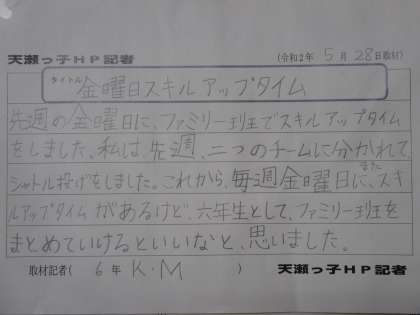 天瀬っ子HP記者 (令和2年5月28日取材)
タイトル 金曜日スキルアップタイム
先週の金曜日に、ファミリー班でスキルアップタイム
をしました。私は、先週、二つのチームに分かれて、
シャトル投げをしました。これから、毎週金曜日に、スキ
また
ルアップタイムがあるけど、六年生として、ファミリー班を
まとめていけるといいなと、思いました。
取材記者( 6年 K・M ) 天瀬っ子HP記者